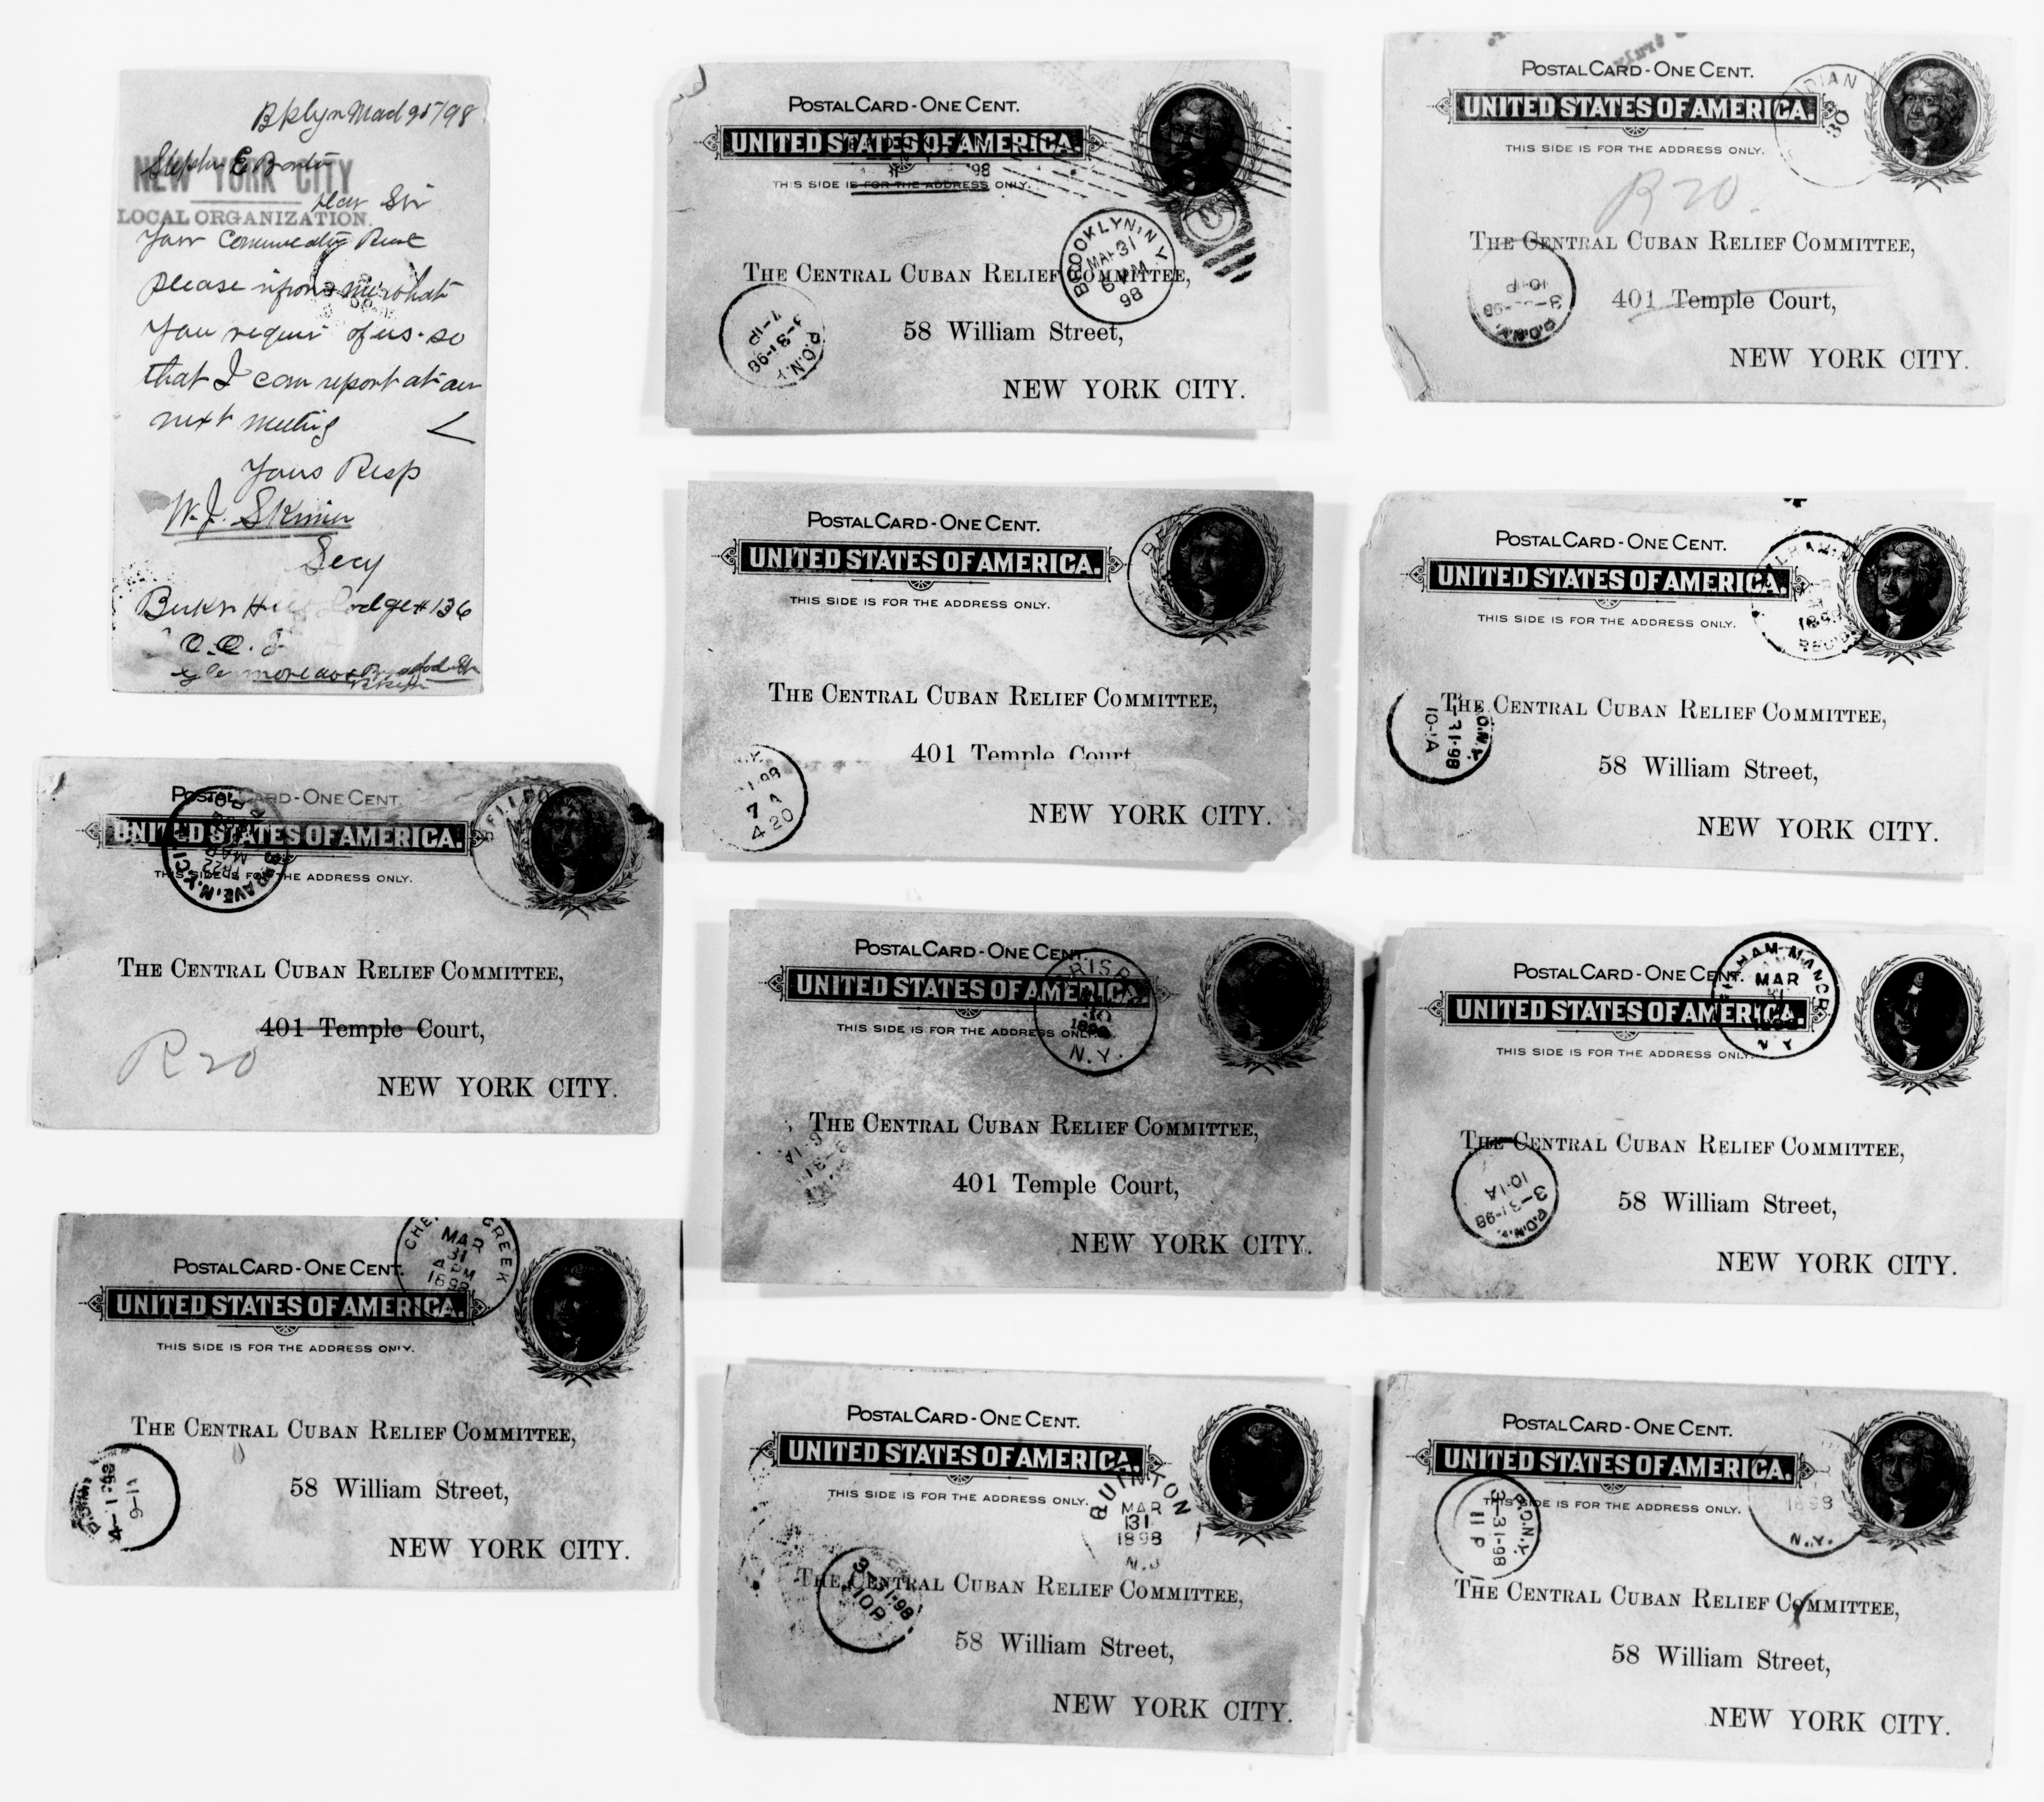 Bklyn Mad 95/98
Stephn E Barton
NEW YORK CITY
Dear Sir
LOCAL ORGANIZATION.
Your
please inform me what
you requir of us. so
that I can report at our
next meeting
Yours Resp
W. J. Skinner
Secy
Lodge # 136
O. O. F
POSTAL CARD - ONE CENT.
UNITED STATES OF AMERICA.
98
THIS SIDE IS FOR THE ADDRESS ONLY.
BROOKLYN, N.Y.
MAR 31
98
THE CENTRAL CUBAN RELIEF COMMITTEE,
P.O.N.Y.
3-31-98
7-1P
58 William Street,
NEW YORK CITY.
POSTAL CARD - ONE CENT.
UNITED STATES OF AMERICA.
30
THIS SIDE IS FOR THE ADDRESS ONLY.
JEFFERSON
R 20.
THE CENTRAL CUBAN RELIEF COMMITTEE,
P.O.N.Y.
10-1P
401 Temple Court,
NEW YORK CITY.
POSTAL CARD - ONE CENT.
UNITED STATES OF AMERICA.
THIS SIDE IS FOR THE ADDRESS ONLY.
THE CENTRAL CUBAN RELIEF COMMITTEE,
401 Temple Court
7 A
4 20
NEW YORK CITY.
POSTAL CARD - ONE CENT.
UNITED STATES OF AMERICA.
THIS SIDE IS FOR THE ADDRESS ONLY.
1898
REC'D
JEFFERSON
THE CENTRAL CUBAN RELIEF COMMITTEE,
O.N.Y.
-31-98
10-1A
58 William Street,
NEW YORK CITY.
POSTAL CARD - ONE CENT.
UNITED STATES OF AMERICA.
THIS SIDE IS FOR THE ADDRESS ONLY.
MAR
THE CENTRAL CUBAN RELIEF COMMITTEE,
401 Temple Court,
R 20
NEW YORK CITY.
POSTAL CARD - ONE CENT.
UNITED STATES OF AMERICA.
THIS SIDE IS FOR THE ADDRESS ONLY.
N.Y.
THE CENTRAL CUBAN RELIEF COMMITTEE,
401 Temple Court,
NEW YORK CITY.
POSTAL CARD - ONE CENT.
UNITED STATES OF AMERICA.
MAR
31
N Y
THIS SIDE IS FOR THE ADDRESS ONLY.
JEFFERSON
THE CENTRAL CUBAN RELIEF COMMITTEE,
P.O.N.Y.
3-31-98
10-1A
58 William Street,
NEW YORK CITY.
MAR
31
4 PM
1898
POSTAL CARD - ONE CENT.
UNITED STATES OF AMERICA.
THIS SIDE IS FOR THE ADDRESS ONLY.
JEFFERSON
THE CENTRAL CUBAN RELIEF COMMITTEE,
58 William Street,
11-6
NEW YORK CITY.
POSTAL CARD - ONE CENT.
UNITED STATES OF AMERICA.
THIS SIDE IS FOR THE ADDRESS ONLY.
QUINTON
MAR
31
1898
N.J
THE CENTRAL CUBAN RELIEF COMMITTEE,
3-31-98
10P
58 William Street,
NEW YORK CITY.
POSTAL CARD - ONE CENT.
UNITED STATES OF AMERICA.
THIS SIDE IS FOR THE ADDRESS ONLY.
1898
N.Y.
P.O.N.Y.
3-31-98
11 P
THE CENTRAL CUBAN RELIEF COMMITTEE,
58 William Street,
NEW YORK CITY.